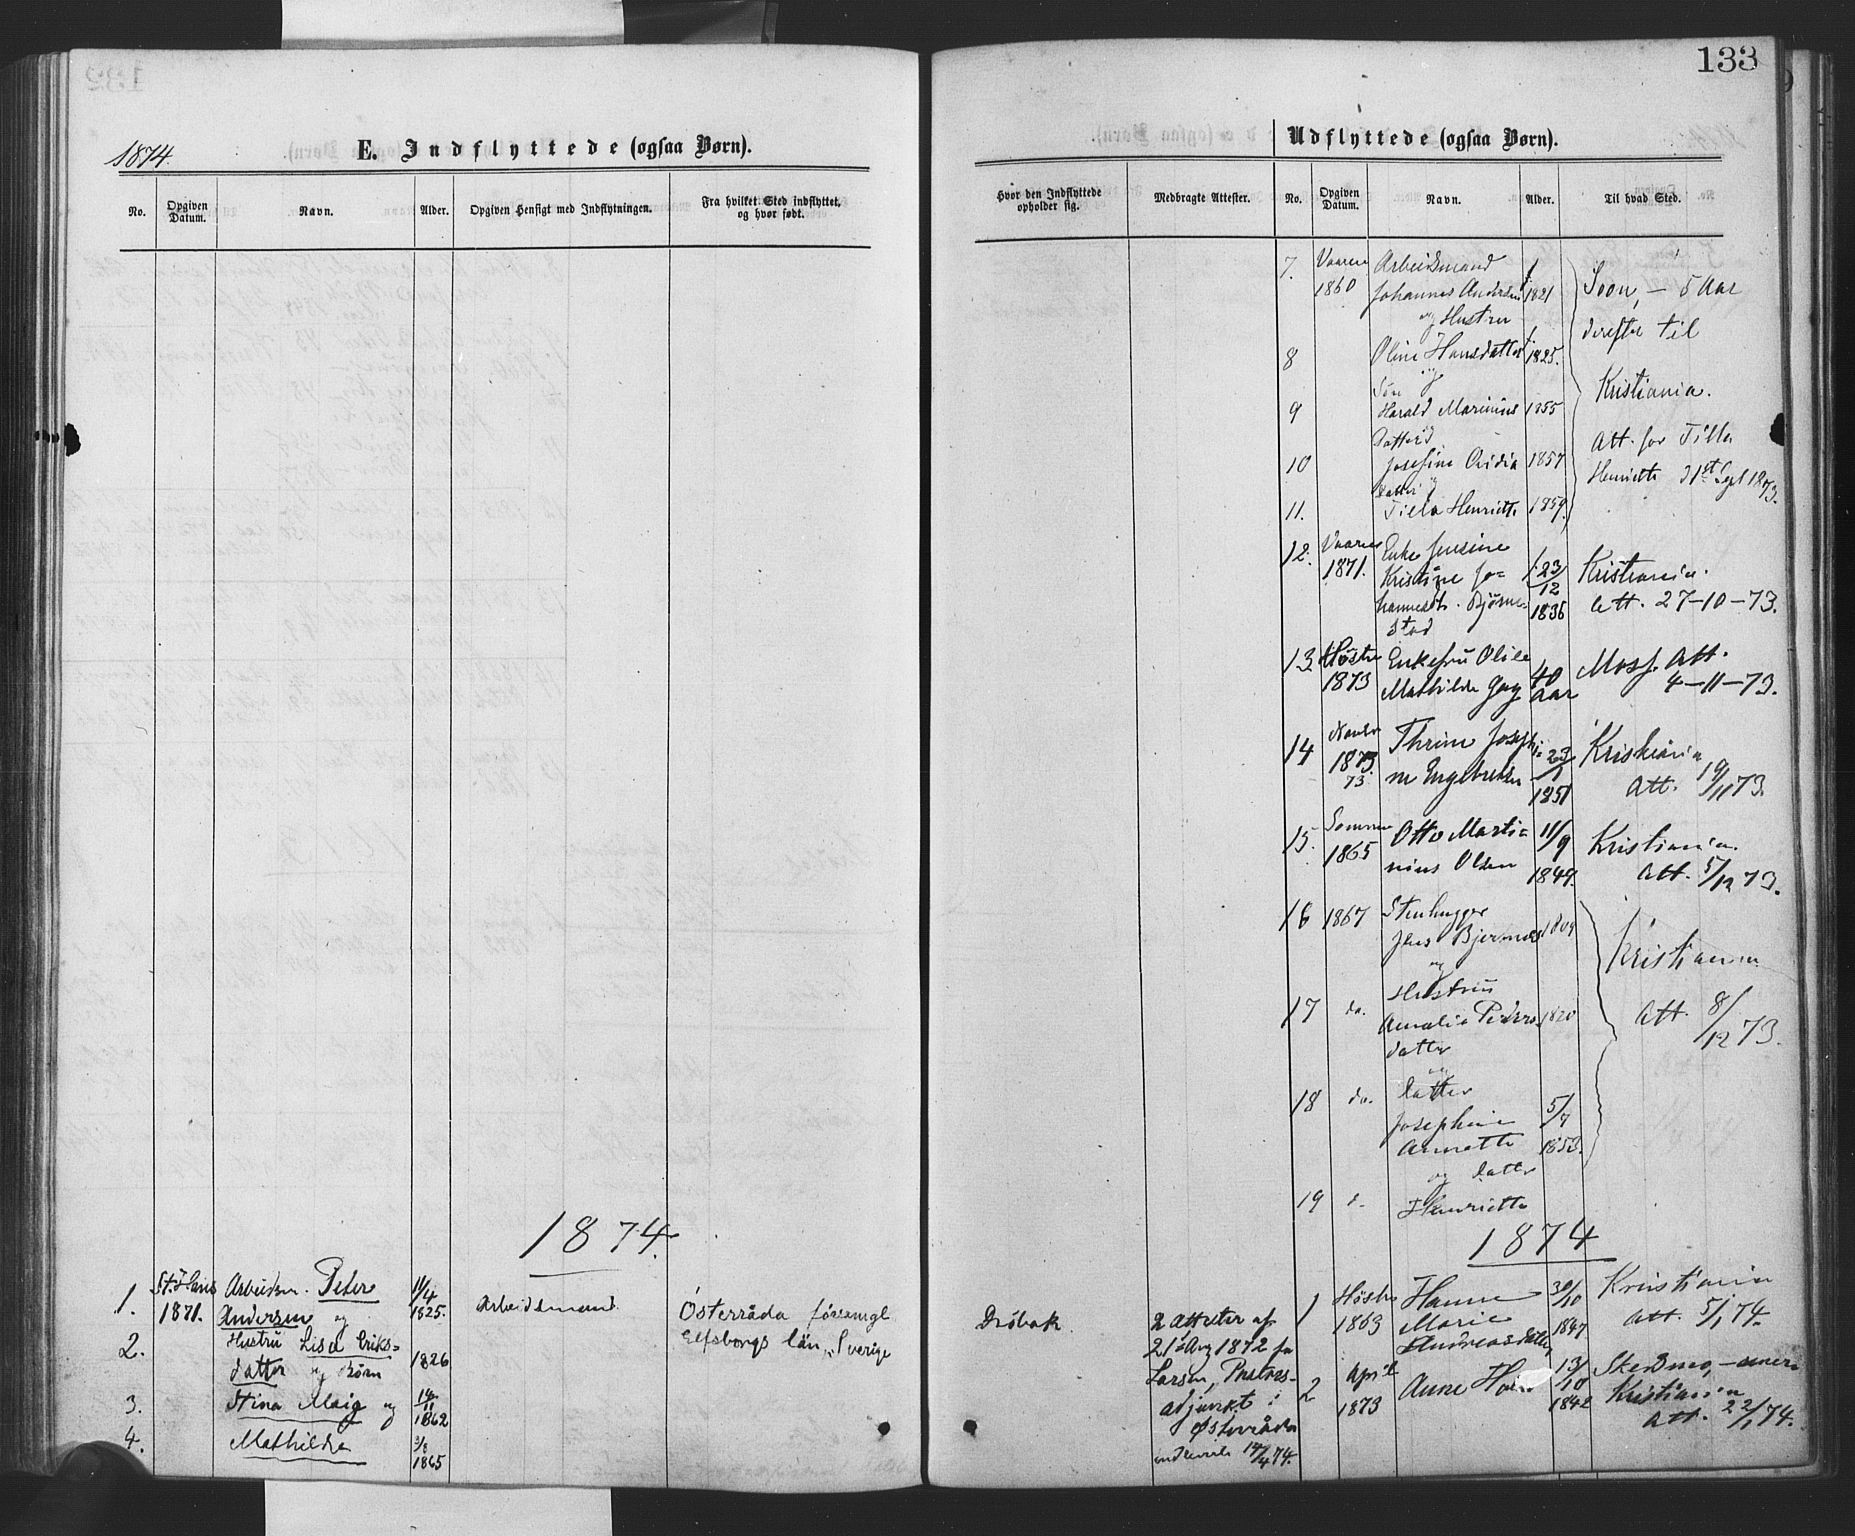 133
1874.
E. Indflyttede (ogsaa Børn).
No.
Opgiven Datum.
Navn.
Alder.
Opgiven Hensigt med Indflytningen.
Fra hvilket Sted indflyttet, og hvor født.
1874.
1. St. Hans 1871. Arbeidsm. Peter 11/4 1825. Arbeidsmand. Österråda församgl
Andersen og Elfsborgs län, Sverige
2. Hustru Lisa Eriks=
datter og Børn 1826
3. Stina Maig og 14/11 1862
4. Mathilde 3/8 1865
Udflyttede (ogsaa Børn).
Hvor den Indflyttede opholder sig.
Medbragte Attester.
No.
Opgiven Datum.
Navn.
Alder.
Til hvad Sted.
7. Vaaren 1860 Arbeidsmand
Johannes Andersen 1821 Soon, – 5 Aar
og Hustru derefter til
8 Oline Hansdatter 1825. Kristiania.
og Søn
9 Harald Marinius 1855
Datter Att. for Tilla
10 Josefine Ovidia 1857 Henriette 21 Sept 1873.
Datter
11. Tilla Henriette 1859.
12. Vaaren 1871. Enke Jensine
Kristine Jo= 23/12 1835 Kristiania.
hannesdt. Bjørne= Att. 27-10-73.
stad
13. Høsten 1873 Enkefru Olise Moss. Att.
Mathilde Gay 40 Aar 4-11-73.
14 Novbr 1873 73. Thrine Josephi= 23/1 1851 Kristiania
ne Engebretsen Att. 19/11 73.
15. Sommer 1865 Otto Marti= 11/9 1849. Kristiania.
nius Olsen Att. 5/12 73.
16 1867 Stenhugger
Jens Bjernæs 1809 Kristiania
og
17 do. Hustru
Amalie Peders 1820 Att. 8/12 73.
datter
og
18 do. Datter
Josephine 5/7
Annette 1853.
og Datter
19 d. Henriette
1874
Drøbak.
2 Attester af
21 Aug 1872 fra
Larsen, Pastors=
adjunkt i
Østeråda
indlevert 14/4 74.
1 Høsten 1863 Hanne 30/10 1847 Kristiania
Marie Att. 5/1 74.
Andreasdatter
2 April 1873 Anne 13/10 1842 Skedsmo, –
Kristiania
Att. 22/1 74.